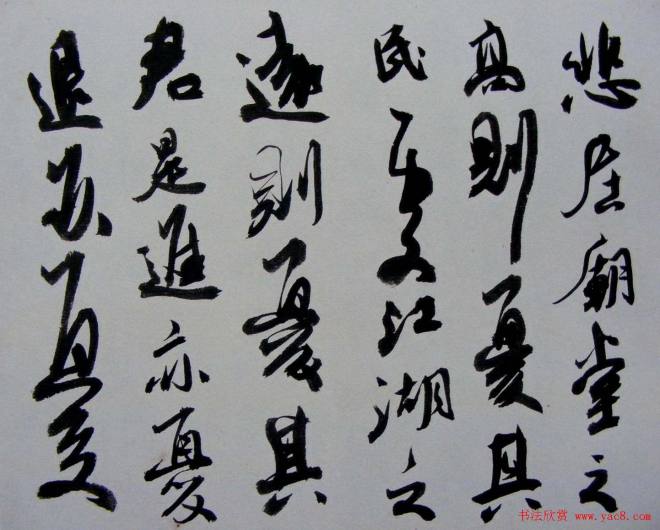 悲居廟堂之
高則憂其
民處江湖之
遠則憂其
君是進亦憂
退亦憂
书法欣赏 www.yac8.com